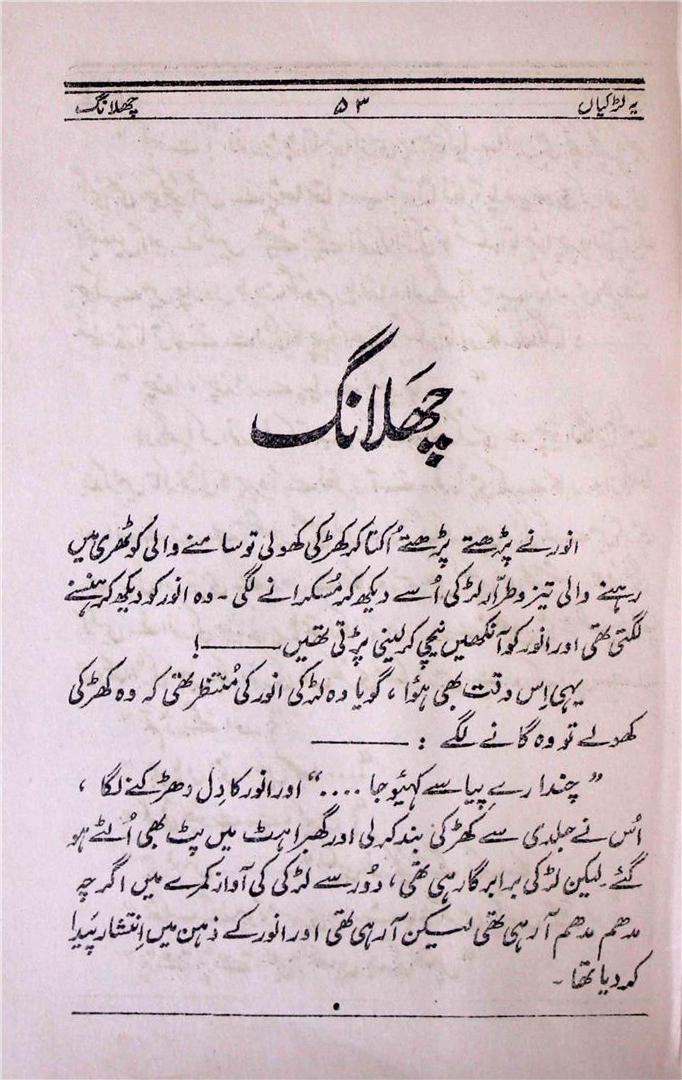 یہ لڑکیاں ۵۳ چھلانگ
چھَلانگ
انور نے پڑھتے پڑھتے اُکتا کر کھڑکی کھولی تو سامنے والی کوٹھری میں
رہنے والی تیز و طرّار لڑکی اُسے دیکھ کر مُسکرانے لگی۔ وہ انور کو دیکھ کر ہنسنے
لگتی تھی اور انور کو آنکھیں نیچی کر لینی پڑتی تھیں ـــــــ !
یہی اِس وقت بھی ہؤا، گویا وہ لڑکی انور کی مُنتظر تھی کہ وہ کھڑکی
کھولے تو وہ گانے لگے : ـــــــ
” چندا رے پیا سے کہیئو جا ....“ اور انور کا دِل دھڑکنے لگا ،
اُس نے جلدی سے کھڑکی بند کر لی اور گھبراہٹ میں پٹ بھی اُلٹے ہو
گئے لیکن لڑکی برابر گا رہی تھی، دُور سے لڑکی کی آواز کمرے میں اگرچہ
مدھم مدھم آ رہی تھی لیکن آ رہی تھی اور انور کے ذہن میں اِنتشار پَیدا
کر دیا تھا۔